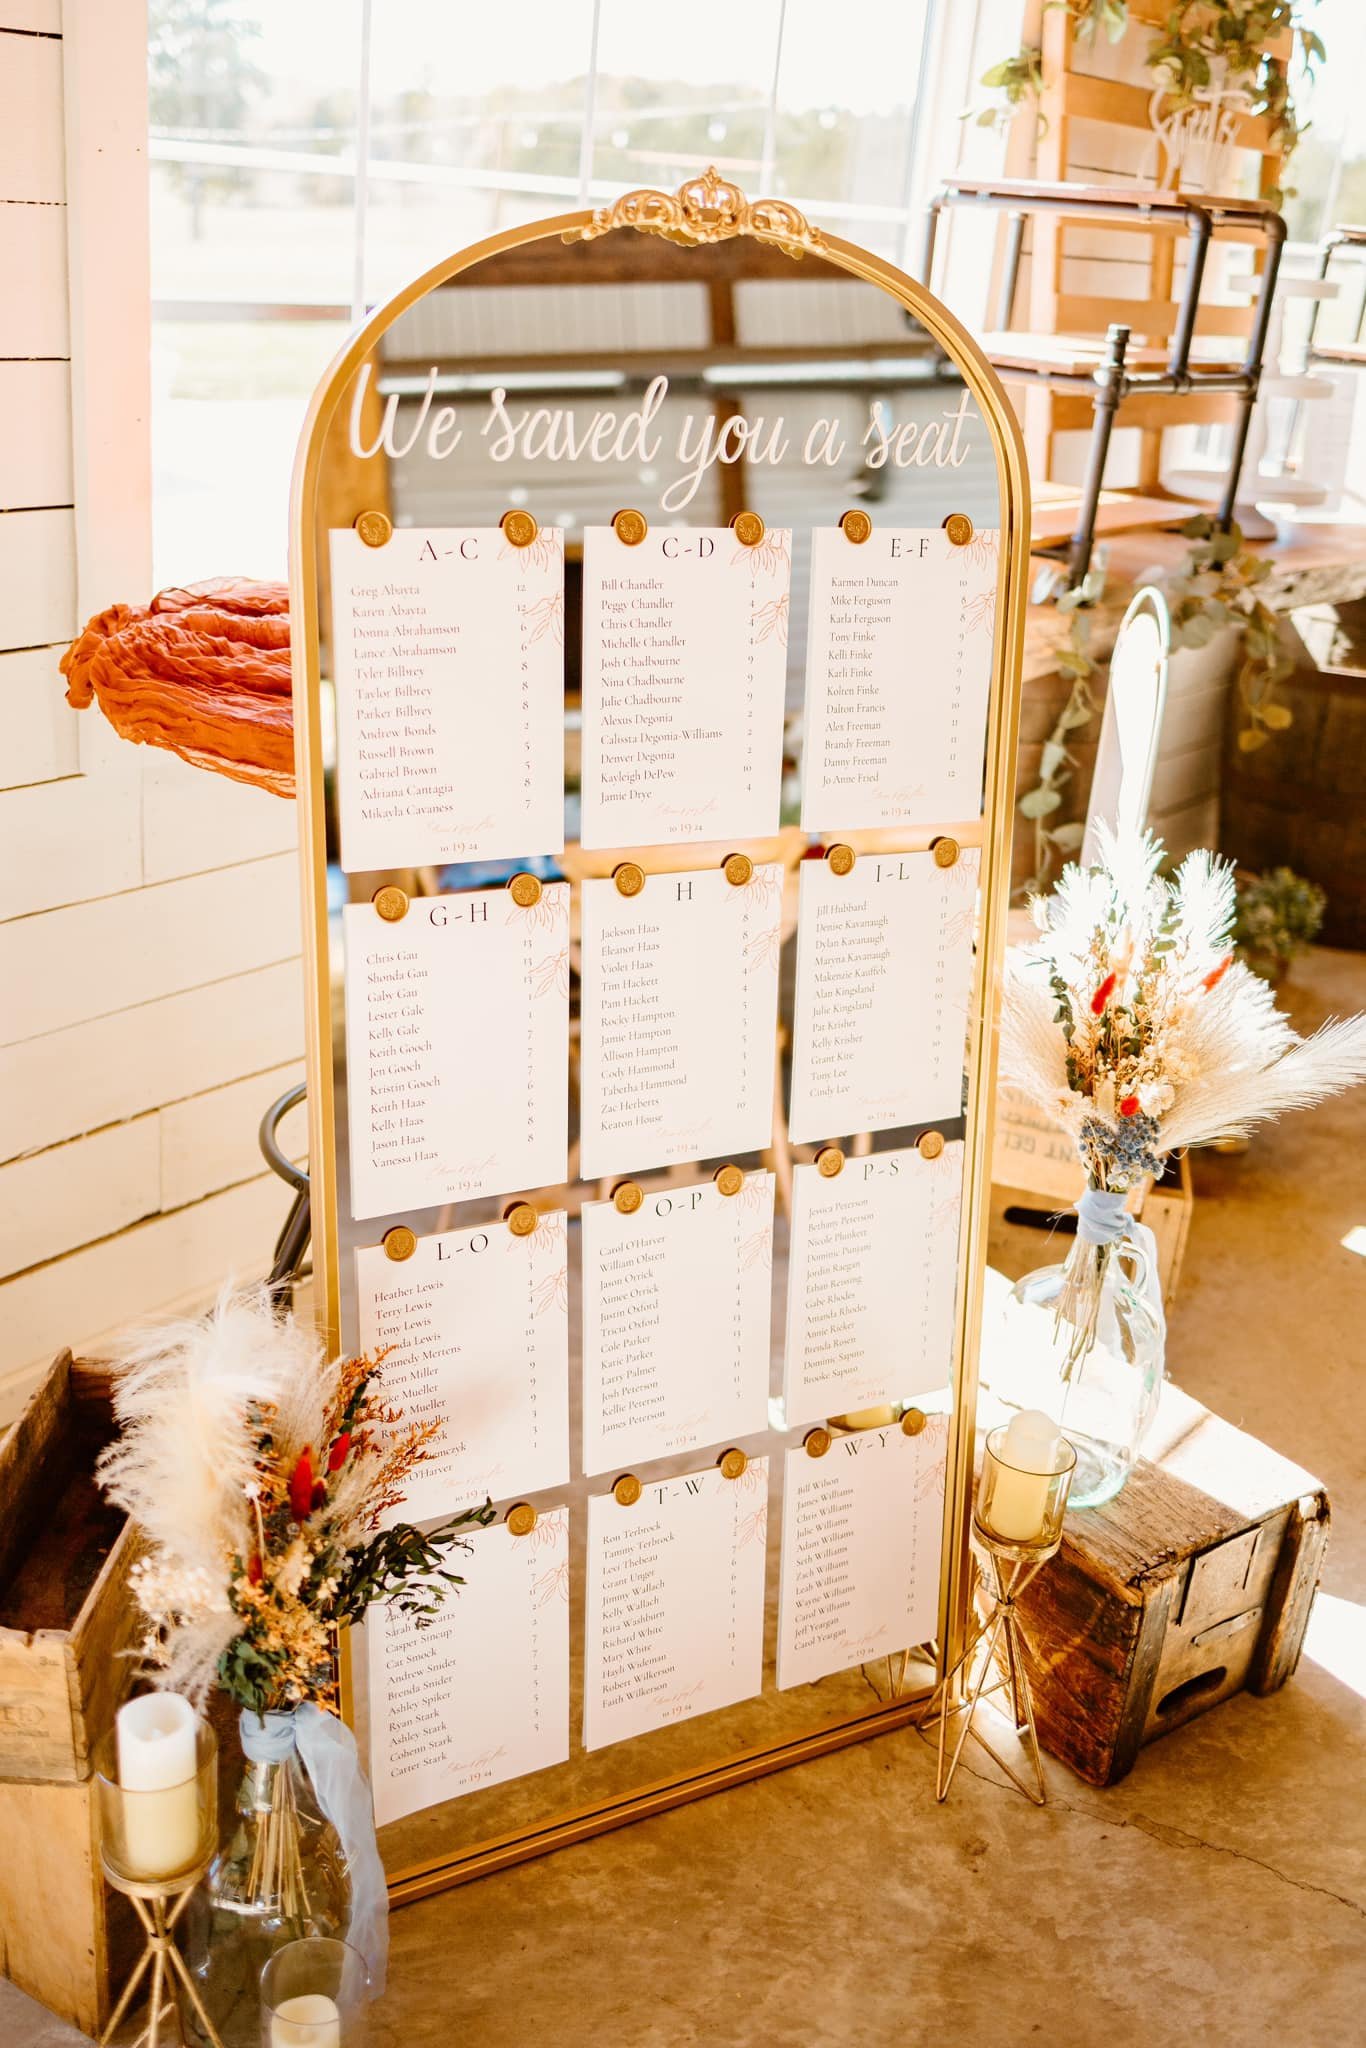 We saved you a seat
A-C
Greg Abayta 12
Karen Abayta 12
Donna Abrahamson 6
Lance Abrahamson 6
Tyler Bilbrey 8
Taylor Bilbrey 8
Parker Bilbrey 8
Andrew Bonds 2
Russell Brown 5
Gabriel Brown 5
Adriana Cantagia 8
Mikayla Cavaness 7
10 19 24
C-D
Bill Chandler 4
Peggy Chandler 4
Chris Chandler 4
Michelle Chandler 4
Josh Chadbourne 9
Nina Chadbourne 9
Julie Chadbourne 9
Alexus Degonia 2
Calissta Degonia-Williams 2
Denver Degonia 2
Kayleigh DePew 10
Jamie Drye 4
10 19 24
E-F
Karmen Duncan 10
Mike Ferguson 8
Karla Ferguson 8
Tony Finke 9
Kelli Finke 9
Karli Finke 9
Kolten Finke 9
Dalton Francis 10
Alex Freeman 11
Brandy Freeman 11
Danny Freeman 11
Jo Anne Fried 12
10 19 24
G-H
Chris Gau 13
Shonda Gau 13
Gaby Gau 13
Lester Gale 1
Kelly Gale 1
Keith Gooch 7
Jen Gooch 7
Kristin Gooch 7
Keith Haas 6
Kelly Haas 6
Jason Haas 8
Vanessa Haas 8
10 19 24
H
Jackson Haas 8
Eleanor Haas 8
Violet Haas 8
Tim Hackett 4
Pam Hackett 4
Rocky Hampton 5
Jamie Hampton 5
Allison Hampton 5
Cody Hammond 3
Tabetha Hammond 3
Zac Herberts 2
Keaton House 10
10 19 24
I-L
Jill Hubbard 13
Denise Kavanaugh
Dylan Kavanaugh
Maryna Kavanaugh
Makenzie Kauffels
Alan Kingsland
Julie Kingsland
Pat Krisher
Kelly Krisher
Grant Kite
Tony Lee
Cindy Lee 9
10 19 24
L-O
Heather Lewis
Terry Lewis
Tony Lewis
Lewis
Kennedy Mertens
Karen Miller
Mueller
Mueller
Russel Mueller
O'Harver
10 19 24
O-P
Carol O'Harver
William Olsten
Jason Orrick
Aimee Orrick
Justin Oxford
Tricia Oxford
Cole Parker
Katie Parker
Larry Palmer
Josh Peterson
Kellie Peterson
James Peterson
10 19 24
P-S
Jessica Peterson
Bethany Peterson
Nicole Plunkett
Dominic Punjani
Jordin Raegan
Ethan Reissing
Gabe Rhodes
Amanda Rhodes
Annie Rieker
Brenda Rosen
Dominic Saputo
Brooke Saputo
10 19 24
Sarah
Casper Sincup
Cat Smock
Andrew Snider
Brenda Snider
Ashley Spiker
Ryan Stark
Ashley Stark
Cohenn Stark
Carter Stark
10 19 24
T-W
Ron Terbrock
Tammy Terbrock
Levi Thebeau
Grant Unger
Jimmy Wallach
Kelly Wallach
Rita Washburn
Richard White
Mary White
Hayli Wideman
Robert Wilkerson
Faith Wilkerson
10 19 24
W-Y
Bill Wilson
James Williams
Chris Williams
Julie Williams
Adam Williams
Seth Williams
Zach Williams
Leah Williams
Wayne Williams
Carol Williams
Jeff Yeargan
Carol Yeargan
10 19 24